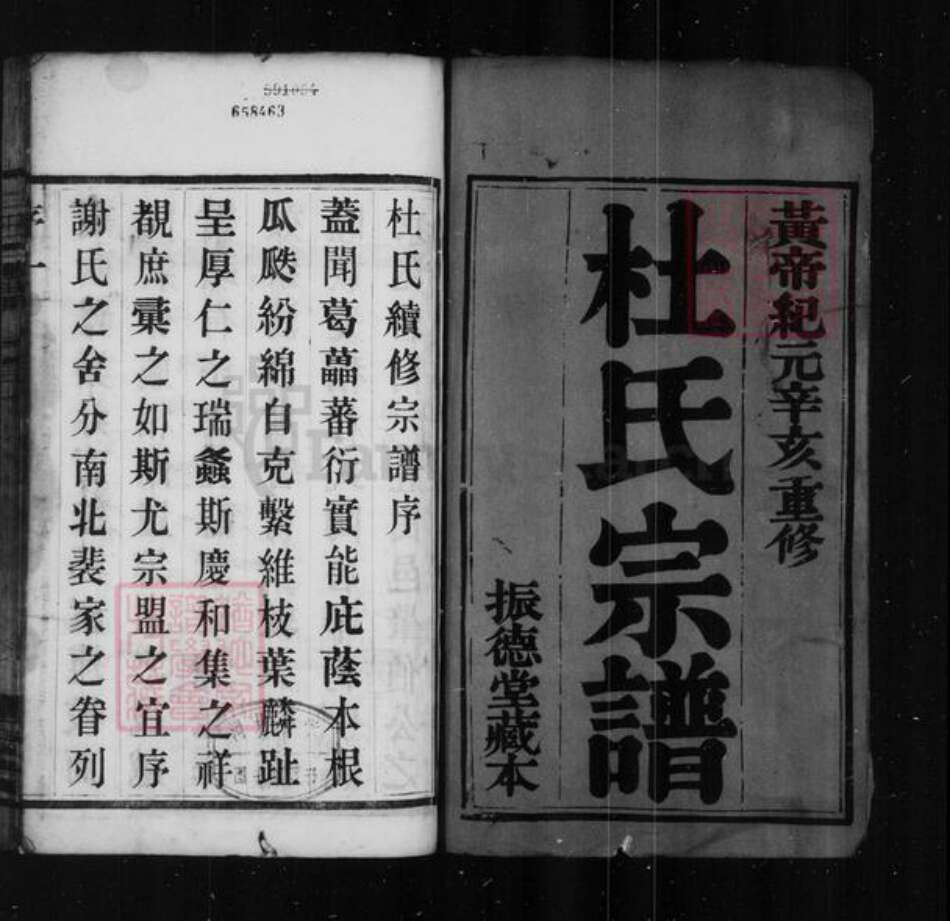 黃帝紀元辛亥重修
杜氏宗譜
振德堂藏本
591064
658463
杜氏續修宗譜序
蓋聞葛藟蕃衍實能庇蔭本根
瓜瓞紛綿自克繫維枝葉麟趾
呈厚仁之瑞螽斯慶和集之祥
覩庶彙之如斯尤宗盟之宜序
謝氏之舍分南北裴家之眷列